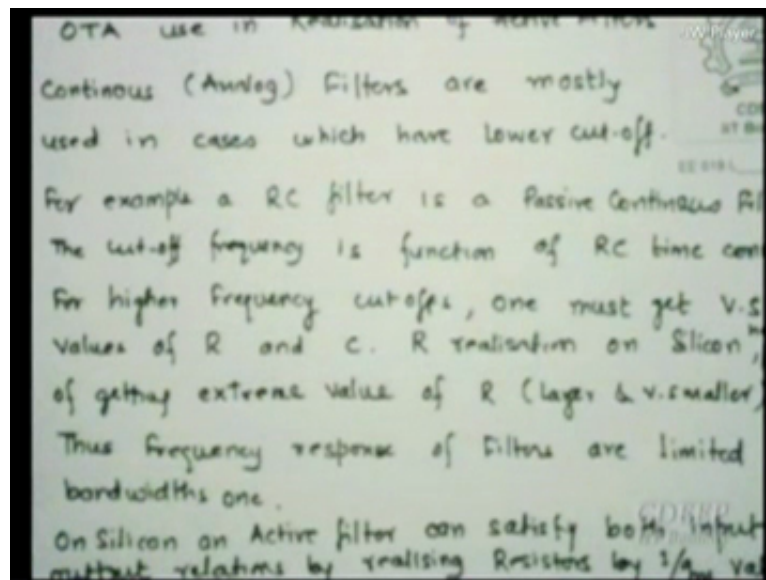 OTA use in Realisation of Active Filters
JW Player
Continous (Analog) Filters are mostly
used in cases which have lower cut-off.
For example a RC filter is a Passive Continuous Fil
The cut-off frequency is function of RC time con
For higher Frequency cutoffs, one must get V.S
values of R and C. R realisation on Silicon
of getting extreme value of R (layer & v.smaller)
Thus frequency response of Filters are limited
bandwidths one.
CDEEP
On Silicon an Active filter can satisfy both input
output relations by realising Resistors by 1/gm val